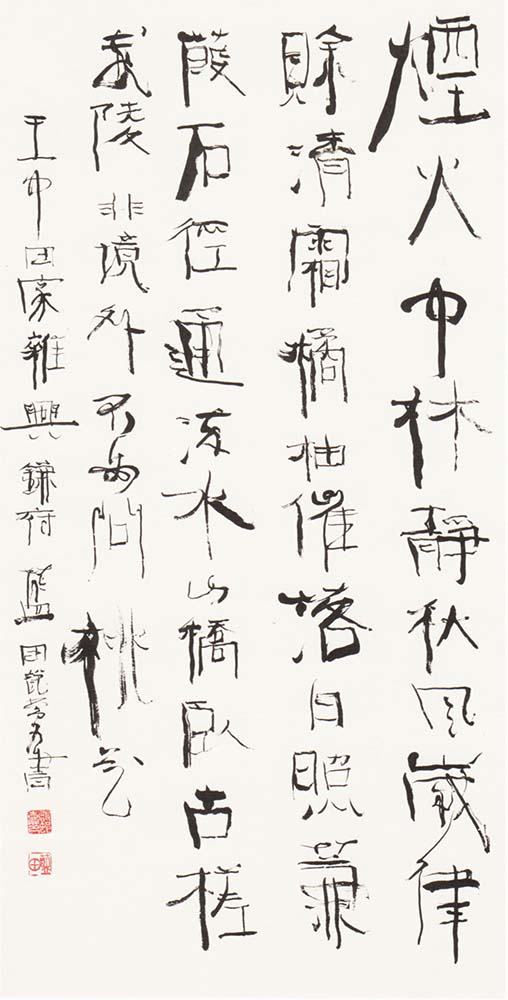 煙火中林靜秋風歲律
賒清霜橘柚催落日照蒹
葭石徑通流水山橋臥古槎
武陵非境外不問桃花
壬申田家雜興 藍田書